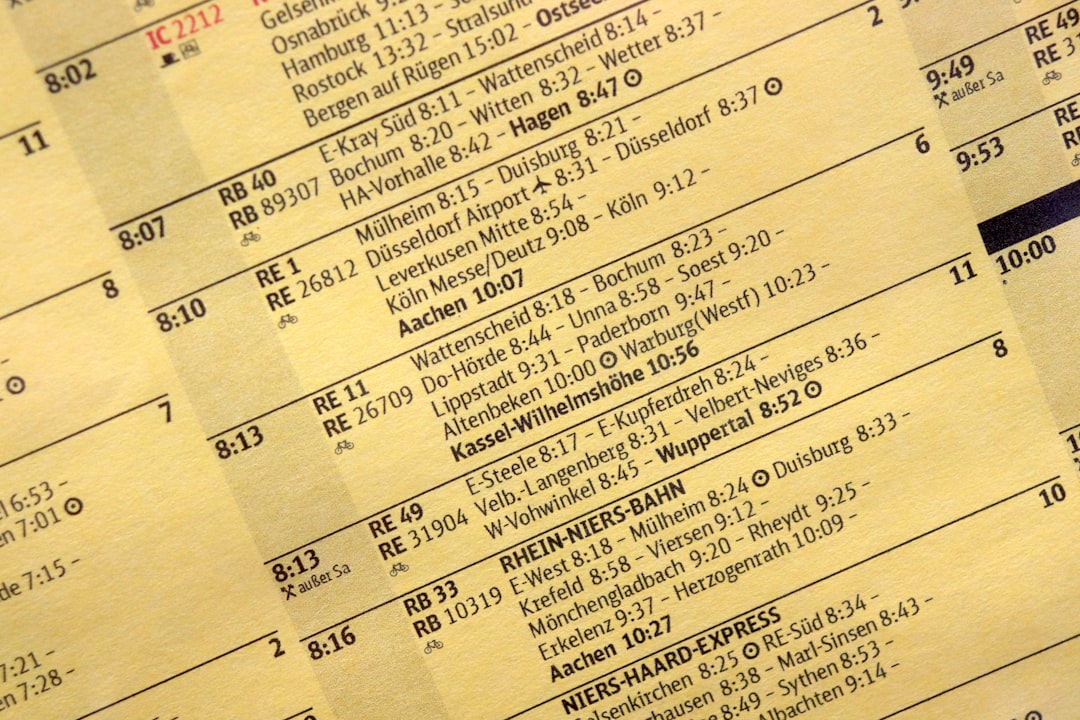 IC 2212
Gelsenki
Osnabrück 9:2
Hamburg 11:13 - Stralsund
Rostock 13:32 -
Bergen auf Rügen 15:02 - Ostsee
8:02
8:07
RB 40
RB 89307
E-Kray Süd 8:11 - Wattenscheid 8:14 -
Bochum 8:20 - Witten 8:32 - Wetter 8:37 -
HA-Vorhalle 8:42 - Hagen 8:47
8:10
RE 1
RE 26812
Mülheim 8:15 - Duisburg 8:21 -
Düsseldorf Airport 8:31 - Düsseldorf 8:37
Leverkusen Mitte 8:54 -
Köln Messe/Deutz 9:08 - Köln 9:12 -
Aachen 10:07
2
8:13
RE 11
RE 26709
Wattenscheid 8:18 - Bochum 8:23 -
Do-Hörde 8:44 - Unna 8:58 - Soest 9:20 -
Lippstadt 9:31 - Paderborn 9:47 -
Altenbeken 10:00 Warburg(Westf) 10:23 -
Kassel-Wilhelmshöhe 10:56
6
8:13
außer Sa
RE 49
RE 31904
E-Steele 8:17 - E-Kupferdreh 8:24 -
Velb.-Langenberg 8:31 - Velbert-Neviges 8:36 -
W-Vohwinkel 8:45 - Wuppertal 8:52
11
8:16
RB 33
RB 10319
RHEIN-NIERS-BAHN
E-West 8:18 - Mülheim 8:24 Duisburg 8:33 -
Krefeld 8:58 - Viersen 9:12 -
Mönchengladbach 9:20 - Rheydt 9:25 -
Erkelenz 9:37 - Herzogenrath 10:09 -
Aachen 10:27
8
NIERS-HAARD-EXPRESS
elsenkirchen 8:25 RE-Süd 8:34 -
hausen 8:38 - Marl-Sinsen 8:43 -
8:49 - Sythen 8:53 -
Albachten 9:14 -
10
11
8
7
l 6:53 -
en 7:01
de 7:15 -
2
7:21 -
en 7:28 -
9:49
außer Sa
RE 49
RE 31
9:53
RE
RE
10:00